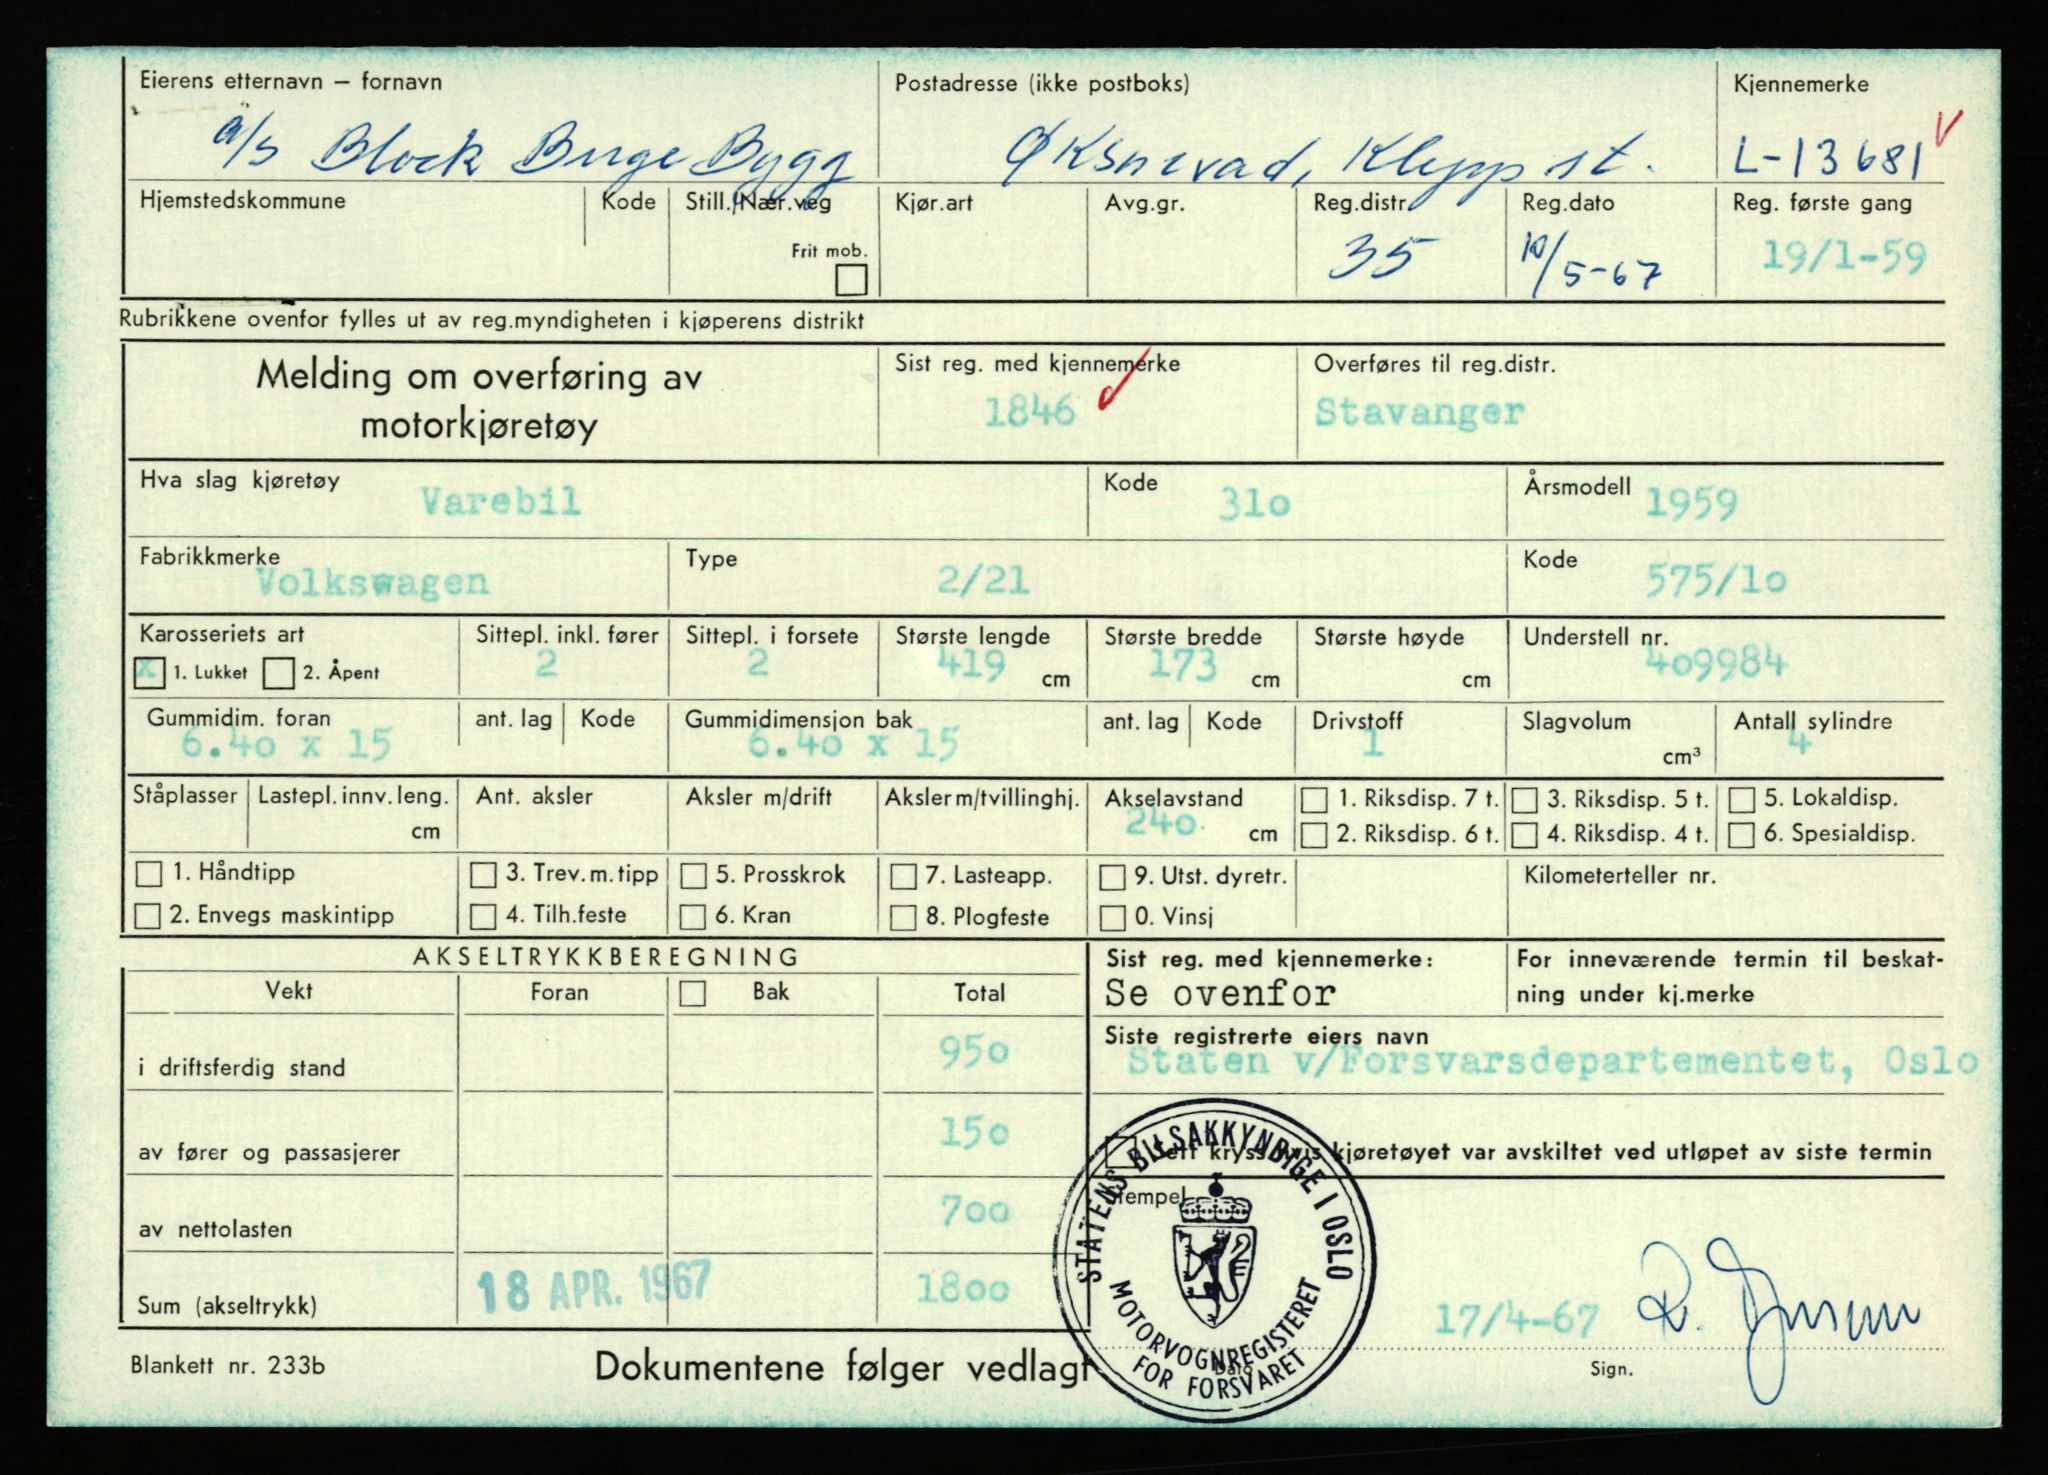 Eierens etternavn – fornavn Postadresse (ikke postboks) Kjennemerke
a/s Block Buge Bygg Øksnevad, Klepp st. L-13681
Hjemstedskommune Kode Still./Nær.veg Kjør.art Avg.gr. Reg.distr. Reg.dato Reg. første gang
Frit mob. 35 10/5-67 19/1-59
Rubrikkene ovenfor fylles ut av reg.myndigheten i kjøperens distrikt
Melding om overføring av Sist reg. med kjennemerke Overføres til reg.distr.
motorkjøretøy 1846 Stavanger
Hva slag kjøretøy Kode Årsmodell
Varebil 31o 1959
Fabrikkmerke Type Kode
Volkswagen 2/21 575/1o
Karosseriets art Sittepl. inkl. fører Sittepl. i forsete Største lengde Største bredde Største høyde Understell nr.
x 1. Lukket 2. Åpent 2 2 419 cm 173 cm cm 4o9984
Gummidim. foran ant. lag Kode Gummidimensjon bak ant. lag Kode Drivstoff Slagvolum Antall sylindre
6.4o x 15 6.4o x 15 1 cm³ 4
Ståplasser Lastepl. innv. leng. Ant. aksler Aksler m/drift Aksler m/tvillinghj. Akselavstand 1. Riksdisp. 7 t. 3. Riksdisp. 5 t. 5. Lokaldisp.
cm 24o. cm 2. Riksdisp. 6 t. 4. Riksdisp. 4 t. 6. Spesialdisp.
1. Håndtipp 3. Trev. m. tipp 5. Prosskrok 7. Lasteapp. 9. Utst. dyretr. Kilometerteller nr.
2. Envegs maskintipp 4. Tilh.feste 6. Kran 8. Plogfeste 0. Vinsj
AKSELTRYKKBEREGNING Sist reg. med kjennemerke: For inneværende termin til beskat-
Vekt Foran Bak Total Se ovenfor ning under kj.merke
Siste registrerte eiers navn
i driftsferdig stand 95o Staten v/Forsvarsdepartementet, Oslo
av fører og passasjerer 15o Sett kryss hvis kjøretøyet var avskiltet ved utløpet av siste termin
Stempel
av nettolasten 7oo
STATENS BILSAKKYNDIGE I OSLO
MOTORVOGNREGISTERET
FOR FORSVARET
Sum (akseltrykk) 18 APR. 1967 18oo 17/4-67
Blankett nr. 233b Dokumentene følger vedlagt Dato Sign.